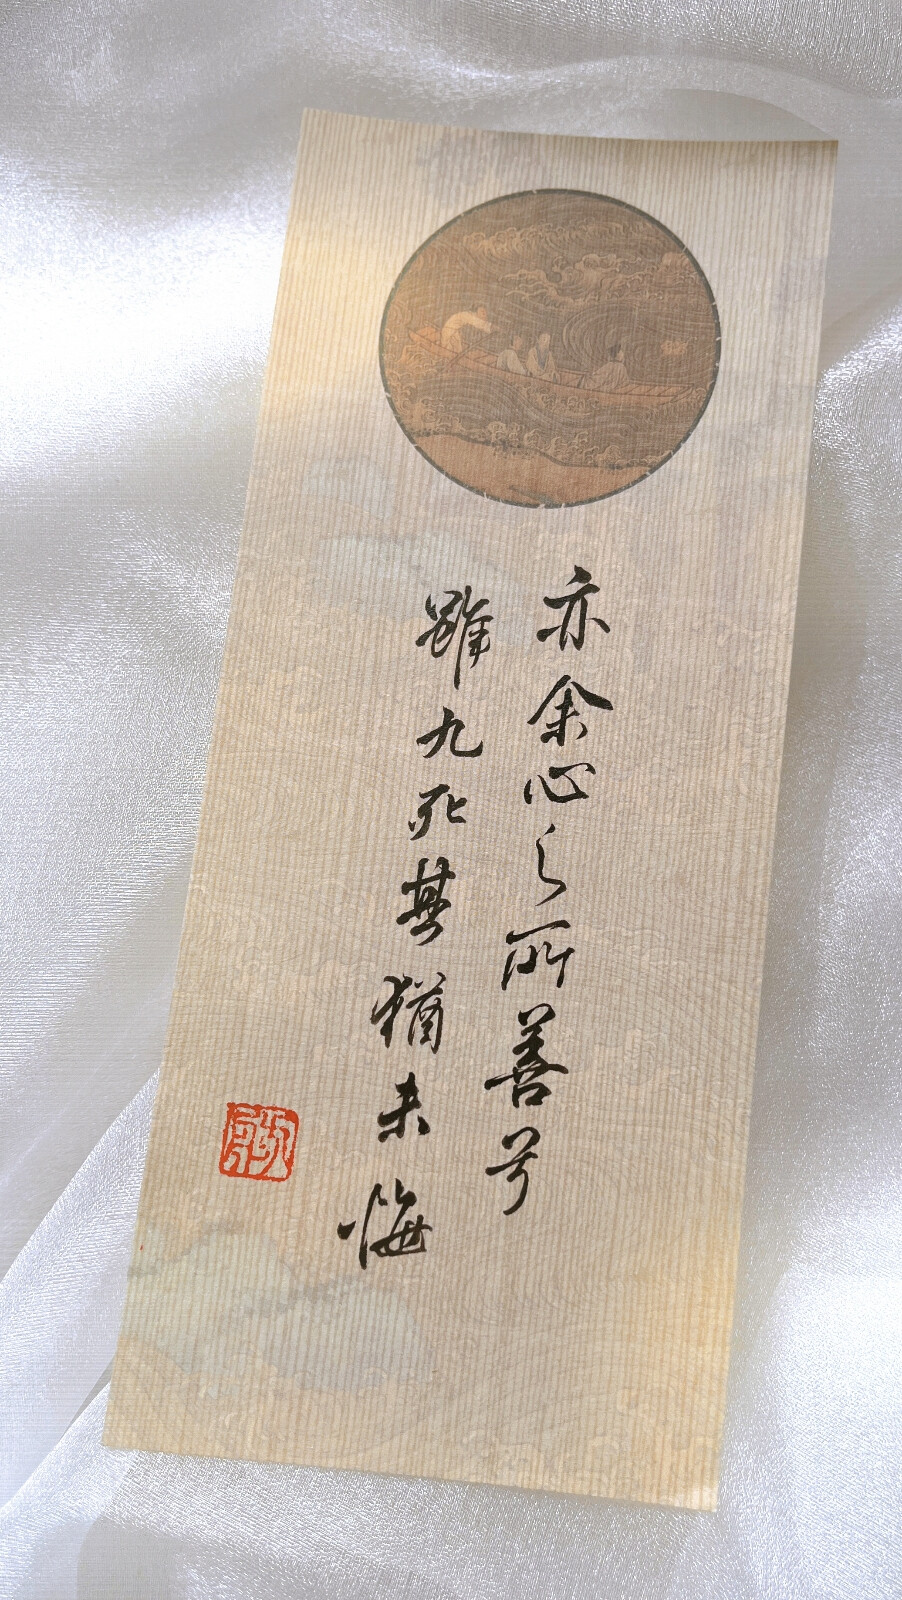 亦余心之所善兮
雖九死其猶未悔